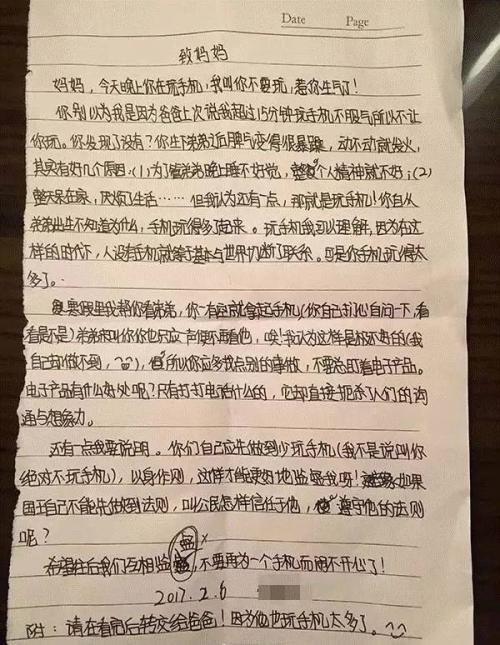 Date Page
致妈妈
妈妈，今天晚上你在玩手机，我叫你不要玩，惹你生气了！
你别以为我是因为爸爸上次说我超过15分钟玩手机不服气所以不让
你玩。你发现了没有？你生下弟弟后脾气变得很暴躁，动不动就发火，
其实有好几个原因：(1)为了管弟弟晚上睡不好觉，整个人精神就不好；(2)
整天呆在家，厌烦了生活……但我认为还有一点，那就是玩手机！你自从
弟弟出生不知道为什么，手机玩得多了起来。玩手机我可以理解，因为在这
样的时代下，人没有手机就等于基本与世界切断了联系。可是你手机玩得太
多了。
我帮你看弟弟，你一有空就拿起手机(你自己打心自问一下，看
看是不是)弟弟叫你你也只应一声便不再看他，唉！我认为这样是极不好的(我
自己却做不到，)，所以你应多找点别的事做，不要总盯着电子产品。
电子产品有什么好处呢？只有打打电话什么的，它却直接扼杀了人们的沟
通与想象力。
还有一点我要说明。你们自己应先做到少玩手机(我不是说叫你
绝对不玩手机)，以身作则，这样才能更好地监督我呀！如果
国王自己不能先做到法则，叫公民怎样信任于他，遵守他的法则
呢？
希望往后我们互相监督，不要再为一个手机而闹不开心了！
2017.2.6
附：请在看后转交给爸爸！因为他也玩手机太多了。